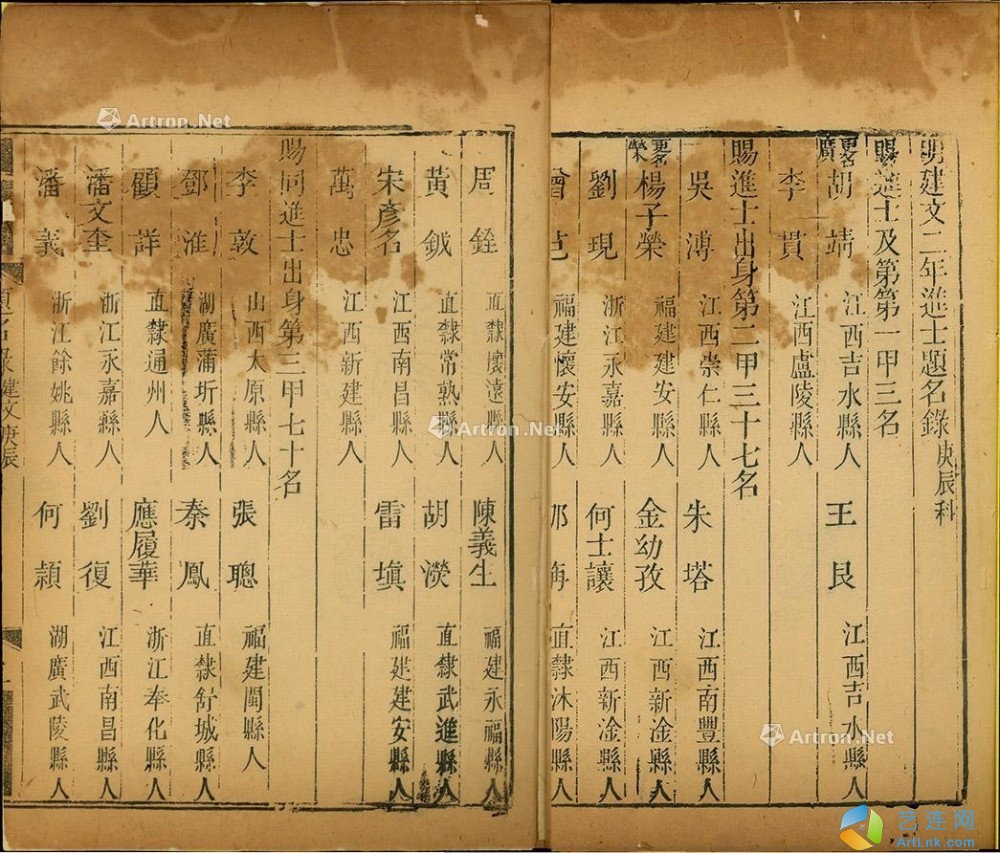 明建文二年進士題名錄 庚辰科
賜進士及第第一甲三名
更名廣 胡靖 江西吉水縣人 王艮 江西吉水縣人
李貫 江西廬陵縣人
賜進士出身第二甲三十七名
吳溥 江西崇仁縣人 朱塔 江西南豐縣人
更名榮 楊子榮 福建建安縣人 金幼孜 江西新淦縣人
劉現 浙江永嘉縣人 何士讓 江西新淦縣人
福建懷安縣人 直隸沐陽縣人
周銓 直隸懷遠縣人 陳義生 福建永福縣人
黃鉞 直隸常熟縣人 胡濙 直隸武進縣人
宋彥名 江西南昌縣人 雷塡 福建建安縣人
萬忠 江西新建縣人
賜同進士出身第三甲七十名
李敦 山西太原縣人 張聰 福建閩縣人
鄧淮 湖廣蒲圻縣人 秦鳳 直隸舒城縣人
顧詳 直隸通州人 應履華 浙江奉化縣人
潘文奎 浙江永嘉縣人 劉復 江西南昌縣人
潘義 浙江餘姚縣人 何穎 湖廣武陵縣人
題名錄 建文庚辰
Artron.Net
Artron.Net
Artron.Net
艺连网
ArtLnk.com